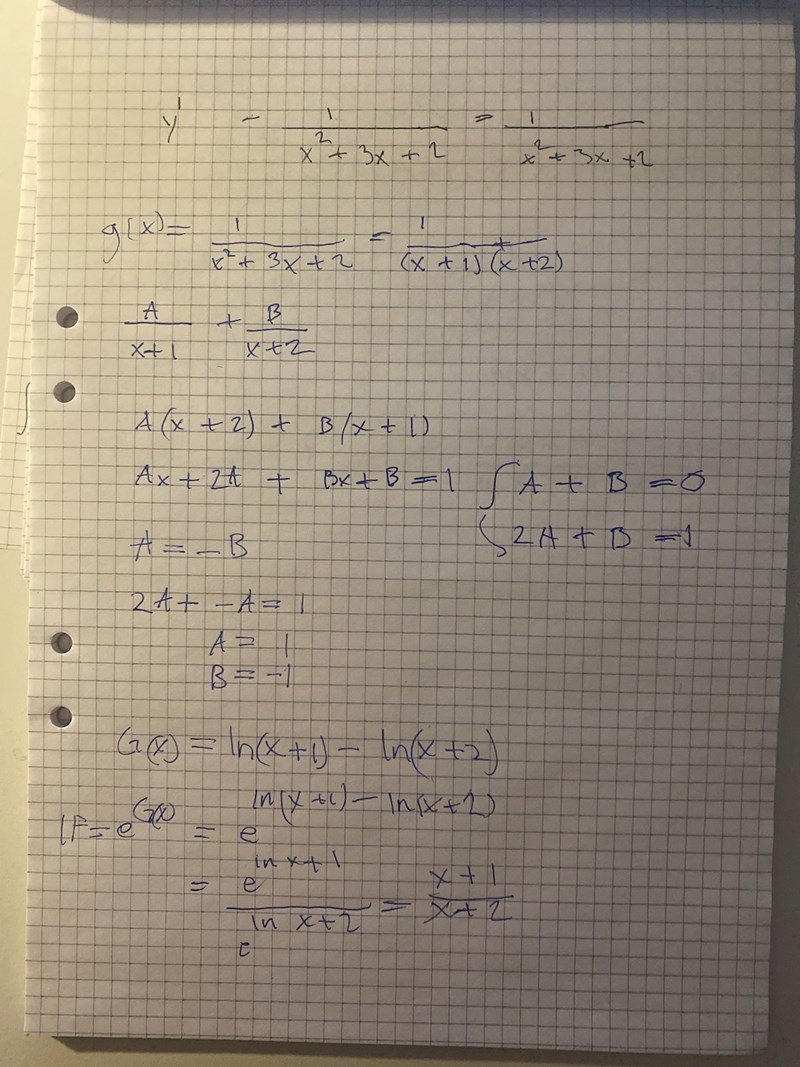 y' - 1/(x² + 3x + 2) = 1/(x² + 3x + 2)
g(x) = 1/(x² + 3x + 2) = 1/((x + 1)(x + 2))
A/(x+1) + B/(x+2)
A(x + 2) + B(x + 1)
Ax + 2A + Bx + B = 1 { A + B = 0
A = -B 2A + B = 1
2A + -A = 1
A = 1
B = -1
G(x) = ln(x+1) - ln(x+2)
IF = e^G(x) = e^(ln(x+1) - ln(x+2))
= e^(ln x+1)/e^(ln x+2) = (x + 1)/(x + 2)